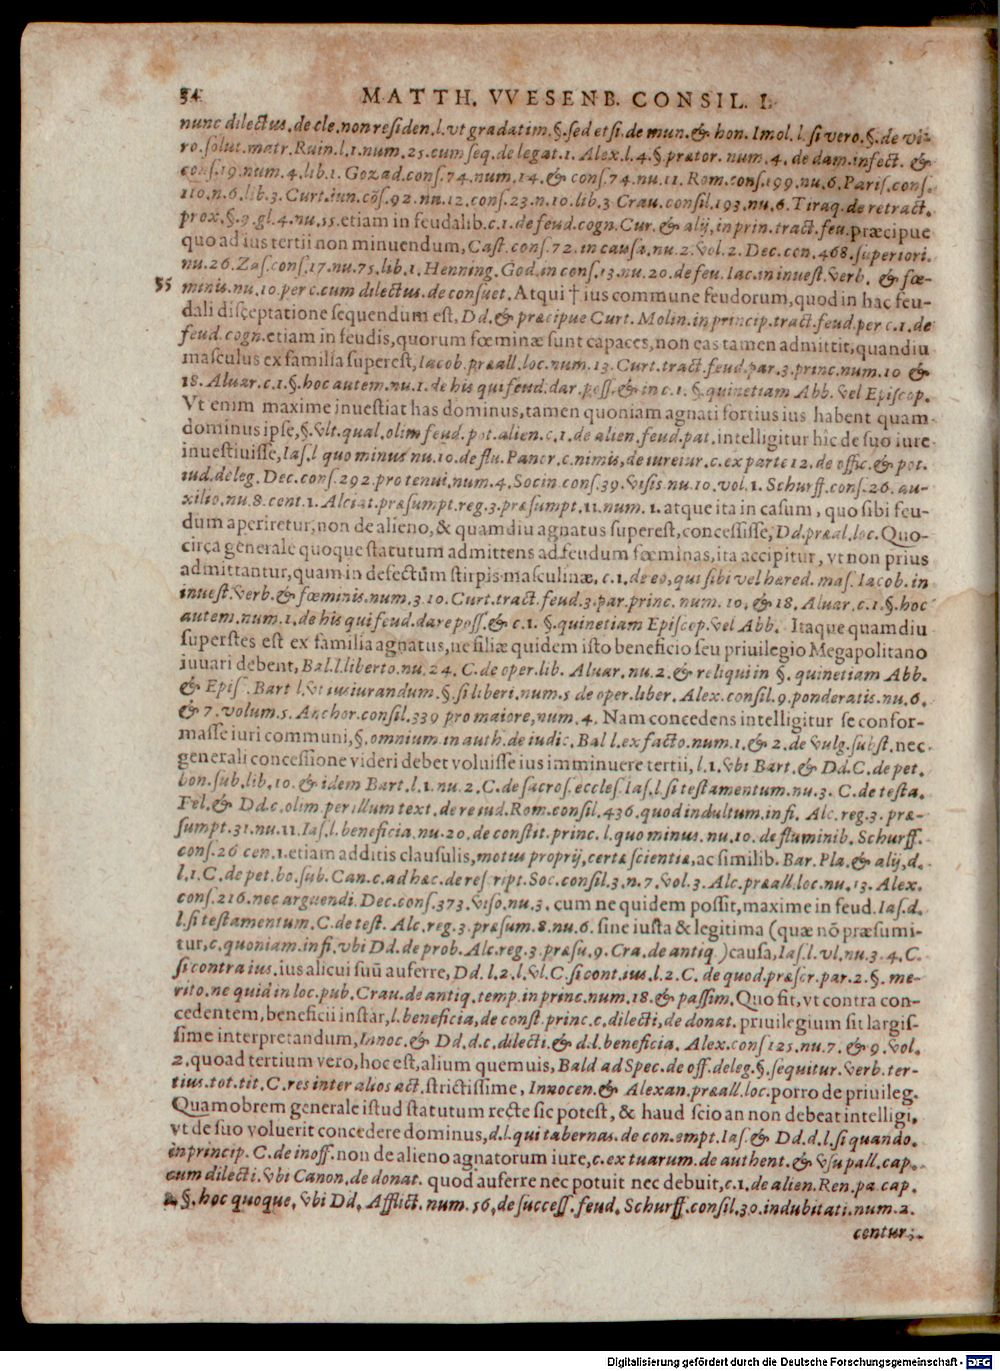 54 MATTH. VVESENB. CONSIL. I.
nunc dilectus. de cle. non residen. l. vt gradatim. §. sed et si. de mun. & hon. Imol. l. si vero. §. de vi-
ro. solut. matr. Ruin. l. 1. num. 25. cum seq. de legat. 1. Alex. l. 4. § prætor. num. 4. de dam. infect. &
cons. 19. num. 4. lib. 1. Gozad. cons. 74. num. 14. & cons. 74. nu. 11. Rom. cons. 199. nu. 6. Paris. cons.
110. n. 6. lib. 3. Curt. iun. cōs. 92. nn. 12. cons. 23. n. 10. lib. 3 Crau. consil. 193. nu. 6. Tiraq. de retract.
prox. §. 9. gl. 4. nu. 55. etiam in feudalib. c. 1. de feud. cogn. Cur. & alij, in prin. tract. feu. præcipue
quo ad ius tertii non minuendum, Cast. cons. 72. in causa. nu. 2. vol. 2. Dec. con. 468. superiori.
nu. 26. Zas. cons. 17. nu. 75. lib. 1. Henning. God. in cons. 13. nu. 20. de feu. Iac. in inuest. verb. & fœ-
55 minis. nu. 10. per c. cum dilectus. de consuet. Atqui † ius commune feudorum, quod in hac feu-
dali disceptatione sequendum est, Dd. & præcipue Curt. Molin. in princip. tract. feud. per c. 1. de
feud. cogn. etiam in feudis, quorum fœminæ sunt capaces, non eas tamen admittit, quandiu
masculus ex familia superest, Iacob. præall. loc. num. 13. Curt. tract. feud. par. 3. princ. num. 10 &
18. Aluar. c. 1. §. hoc autem. nu. 1. de his qui feud. dar. poss. & in c. 1. §. quinetiam Abb. vel Episcop.
Vt enim maxime inuestiat has dominus, tamen quoniam agnati fortius ius habent quam
dominus ipse, §. vlt. qual. olim feud. pot. alien. c. 1. de alien. feud. pat. intelligitur hic de suo iure
inuestiuisse, Ias. l quo minus nu. 10. de flu. Panor. c. nimis, de iureiur. c. ex parte 12. de offic. & pot.
iud. deleg. Dec. cons. 292. pro tenui, num. 4. Socin. cons. 39. visis nu. 10. vol. 1. Schurff. cons. 26. au-
xilio. nu. 8. cent. 1. Alciat. præsumpt. reg. 3. præsumpt. 11. num. 1. atque ita in casum, quo sibi feu-
dum aperiretur, non de alieno, & quamdiu agnatus superest, concessisse, Dd. præal. loc. Quo-
circa generale quoque statutum admittens ad feudum fœminas, ita accipitur, vt non prius
admittantur, quam in defectum stirpis masculinæ, c. 1. de eo, qui sibi vel hæred. mas. Iacob. in
inuest. verb. & fœminis. num. 3. 10. Curt. tract. feud. 3. par. princ. num. 10. & 18. Aluar. c. 1. §. hoc
autem. num. 1. de his qui feud. dare poss. & c. 1. §. quinetiam Episcop. vel Abb. Itaque quamdiu
superstes est ex familia agnatus, ne filiæ quidem isto beneficio seu priuilegio Megapolitano
iuuari debent, Bal. l. liberto. nu. 24. C. de oper. lib. Aluar. nu. 2. & reliqui in §. quinetiam Abb.
& Epis. Bart l. vt iusiurandum. §. si liberi, num. 5 de oper. liber. Alex. consil. 9. ponderatis. nu. 6.
& 7. volum. 5. Anchor. consil. 339 pro maiore, num. 4. Nam concedens intelligitur se confor-
masse iuri communi, §. omnium. in auth. de iudic. Bal l. ex facto. num. 1. & 2. de vulg. subst. nec
generali concessione videri debet voluisse ius imminuere tertii, l. 1. vbi Bart. & Dd. C. de pet.
bon. sub. lib. 10. & idem Bart. l. 1. nu. 2. C. de sacros. eccles. Ias. l. si testamentum. nu. 3. C. de testa.
Fel. & Dd. c. olim per illum text. de re iud. Rom. consil. 436. quod indultum in fi. Alc. reg. 3. præ-
sumpt. 31. nu. 11. Ias. l. beneficia. nu. 20. de constit. princ. l. quo minus. nu. 10. de fluminib. Schurff.
cons. 26 cen. 1. etiam additis clausulis, motus proprij, certæ scientiæ, ac similib. Bar. Pla. & alij, d.
l. 1. C. de pet. bo. sub. Can. c. ad hæc. de rescript. Soc. consil. 3. n. 7. vol. 3. Alc. præall. loc. nu. 13. Alex.
cons. 216. nec arguendi. Dec. cons. 373. viso, nu. 3. cum ne quidem possit, maxime in feud. Ias. d.
l. si testamentum. C. de test. Alc. reg. 3. præsum. 8. nu. 6. sine iusta & legitima (quæ nō præsumi-
tur, c. quoniam. in fi. vbi Dd. de prob. Alc. reg. 3. præsu. 9. Cra. de antiq.) causa, Ias. l. vl. nu. 3. 4. C.
si contra ius. ius alicui suū auferre, Dd. l. 2. l. vl. C. si cont. ius. l. 2. C. de quod. præscr. par. 2. §. me-
rito. ne quid in loc. pub. Crau. de antiq. temp. in princ. num. 18. & passim. Quo fit, vt contra con-
cedentem, beneficii instar, l. beneficia, de const. princ. c. dilecti, de donat. priuilegium sit largis-
sime interpretandum, Innoc. & Dd. d. c. dilecti. & d. l. beneficia. Alex. cons 125. nu. 7. & 9. vol.
2. quoad tertium vero, hoc est, alium quemuis, Bald ad Spec. de off. deleg. §. sequitur. verb. ter-
tius. tot. tit. C. res inter alios act. strictissime, Innocen. & Alexan. præall. loc. porro de priuileg.
Quamobrem generale istud statutum recte sic potest, & haud scio an non debeat intelligi,
vt de suo voluerit concedere dominus, d. l. qui tabernas. de con. empt. Ias. & Dd. d. l. si quando.
in princip. C. de inoff. non de alieno agnatorum iure, c. ex tuarum. de authent. & vsu pall. cap.
cum dilecti. vbi Canon. de donat. quod auferre nec potuit nec debuit, c. 1. de alien. Ren. pa. cap.
2. §. hoc quoque, vbi Dd. Afflict. num. 56. de success. feud. Schurff. consil. 30. indubitati. num. 2.
centur.
Digitalisierung gefördert durch die Deutsche Forschungsgemeinschaft - DFG